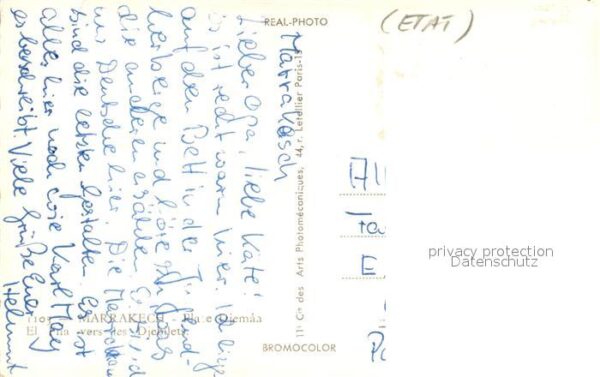 REAL-PHOTO
(ETAT)
Marrakesch
Lieber Opa, liebe Käte!
Es ist recht warm hier. Ich liege
auf dem Bett in der Jugend-
herberge und höre zu, was
die anderen erzählen. Es sind
nur Deutsche hier. Die Marokkaner
sind die letzten Gestalten. Es ist
alles hier noch wie Karl May
es beschreibt. Viele Grüße Euer
Helmut
MARRAKECH - Place Djemâa
El Fna vers les Djebilets
11 Cie des Arts Photomécaniques, 44, r. Letellier Paris-15
BROMOCOLOR
All
E
privacy protection
Datenschutz